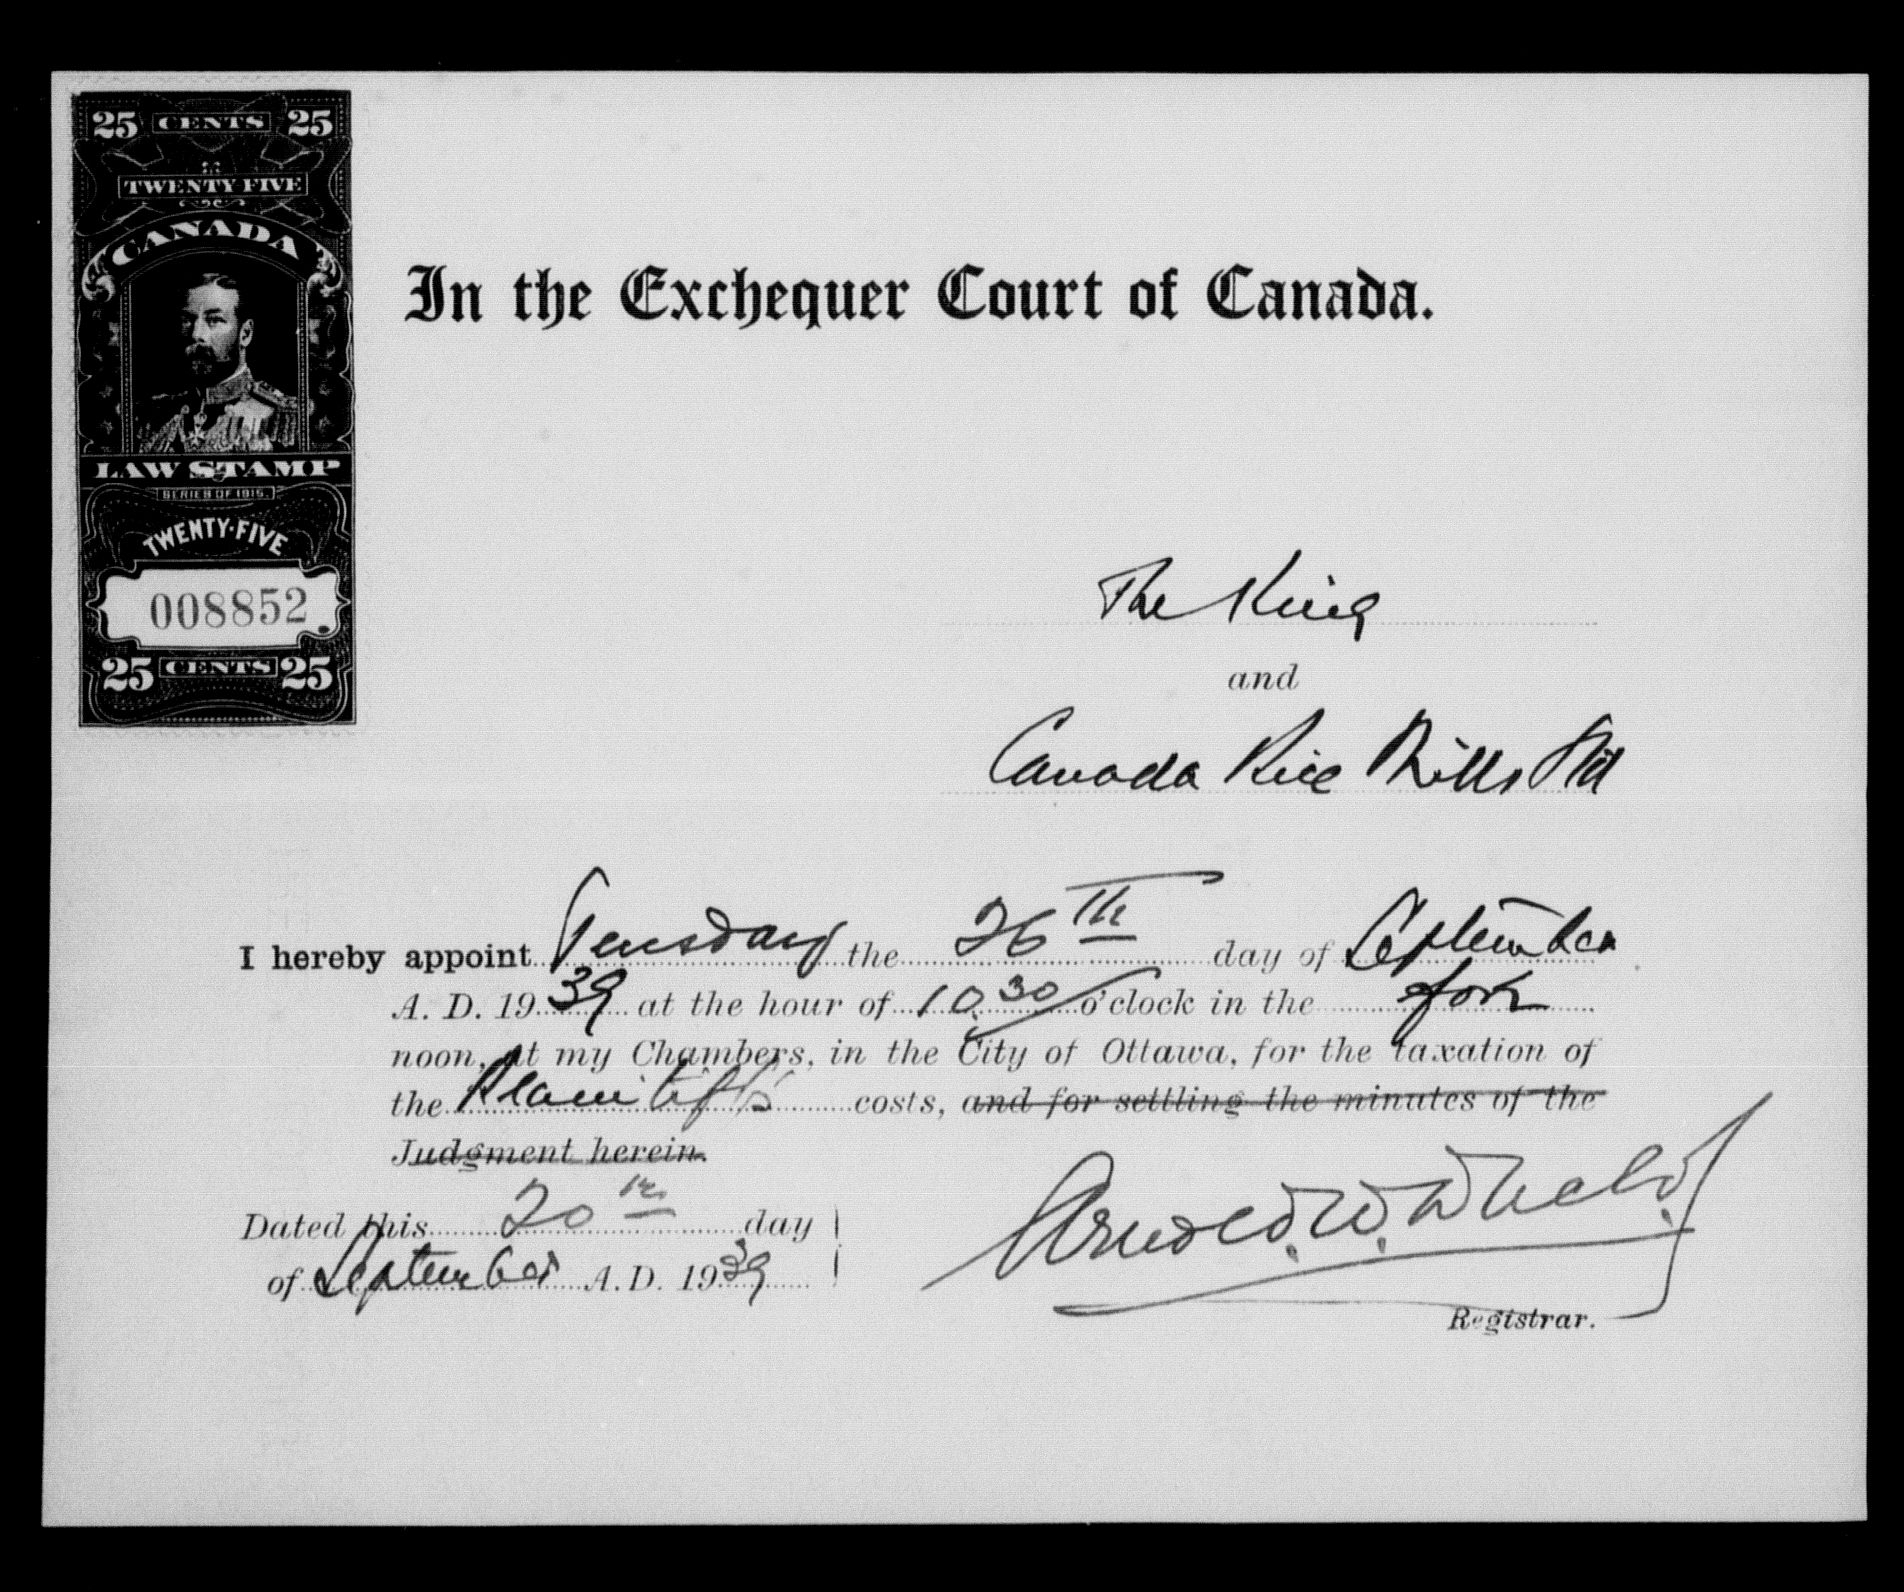 25 CENTS 25
TWENTY FIVE
CANADA
LAW STAMP
SERIES OF 1915.
TWENTY-FIVE
008852
25 CENTS 25
In the Exchequer Court of Canada.
The King
and
Canada Rice Mills Ltd
I hereby appoint Tuesday the 26th day of September
A. D. 1939 at the hour of 10.30 o'clock in the fore
noon, at my Chambers, in the City of Ottawa, for the taxation of
the Plaintiff's costs, and for settling the minutes of the
Judgment herein.
Dated this 20th day
of September A.D. 1939
Arnold W.
Registrar.